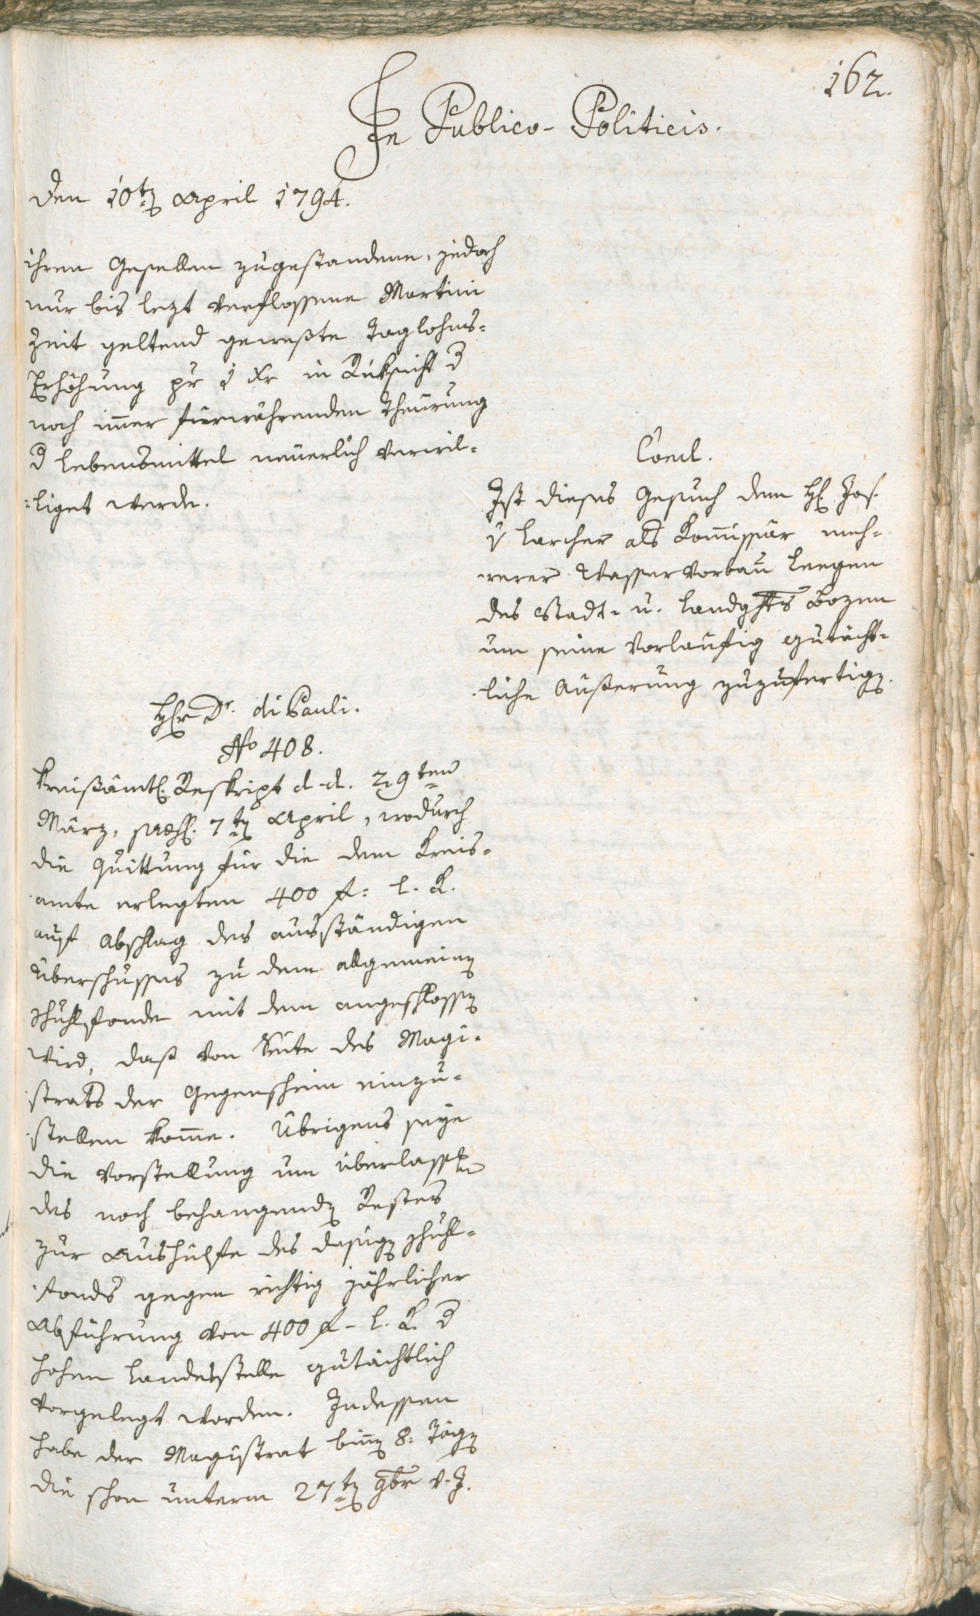 162.
In Publico-Politicis.
den 10t April 1794.
ihren Gesellen zugestandene, jedoch
nur bis lezt verflossene Martini
Zeit geltend geweßte Taglohns-
Erhöhung pr 1 Xr in Rüksicht d
noch immer fürwährenden Theürung
d Lebensmittel neüerlich verwil-
liget werde.
Concl.
Ist dieses Gesuch dem H Jos.
v Larcher als Kommissär meh-
rerer Wasser Vorbau Leegen
des Stadt- u. Landghts Bozen
um seine Vorlaüfig gutächt-
liche Aüßerung zuzufertig.
H Dr. di Pauli.
No 408.
Kreißämtl Reskript d. d. 29ten
März, 7t April, wodurch
die Quittung für die dem Kreis-
amte erlegten 400 f: l. K.
auf Abschlag des ausständigen
Überschusses zu dem allgemein
Schulfonde mit dem angeschlossen
wird, daß von Seite des Magi-
strats der Gegenschein einzu-
stellen komme. Übrigens seye
die Vorstellung um überlassen
des noch behangend Restes
zur Aushülfe des dasig Schul-
fonds gegen richtig jährlicher
Abführung von 400 f - l. K. d
hohen Landesstelle gutächtlich
vorgelegt worden. Indessen
habe der Magistrat bin 8: Täg
die schon unterm 27t 9br v. J.